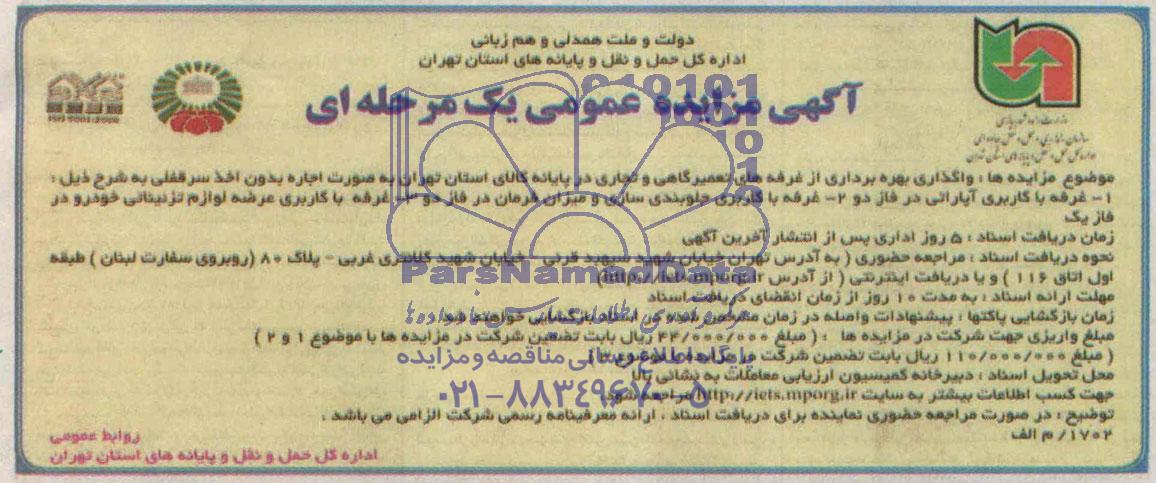 دولت و ملت همدلی و هم زبانی
اداره کل حمل و نقل و پایانه های استان تهران
آگهی مزایده عمومی یک مرحله ای
ISO 9001:2008
موضوع مزایده ها : واگذاری بهره برداری از غرفه های تعمیرگاهی و تجاری در پایانه کالای استان تهران به صورت اجاره بدون اخذ سرقفلی به شرح ذیل :
۱- غرفه با کاربری آپاراتی در فاز دو ۲- غرفه با کاربری جلوبندی سازی و میزان فرمان در فاز دو ۳- غرفه با کاربری عرضه لوازم تزئیناتی خودرو در
فاز یک
زمان دریافت اسناد : ۵ روز اداری پس از انتشار آخرین آگهی
نحوه دریافت اسناد : مراجعه حضوری ( به آدرس تهران خیابان شهید سپهبد قرنی - خیابان شهید کلانتری غربی - پلاک ۸۰ (روبروی سفارت لبنان ) طبقه
اول اتاق ۱۱۶ ) و یا دریافت اینترنتی ( از آدرس http://iets.mporg.ir)
مهلت ارائه اسناد : به مدت ۱۰ روز از زمان انقضای دریافت اسناد
زمان بازگشایی پاکتها : پیشنهادات واصله در زمان مشخص شده در اسناد بازگشایی خواهند شد
مبلغ واریزی جهت شرکت در مزایده ها : ( مبلغ ۴۴/۰۰۰/۰۰۰ ریال بابت تضمین شرکت در مزایده ها با موضوع ۱ و ۲ )
( مبلغ ۱۱۰/۰۰۰/۰۰۰ ریال بابت تضمین شرکت در مزایده با موضوع ۳ )
محل تحویل اسناد : دبیرخانه کمیسیون ارزیابی معاملات به نشانی بالا
جهت کسب اطلاعات بیشتر به سایت http://iets.mporg.ir مراجعه شود
توضیح : در صورت مراجعه حضوری نماینده برای دریافت اسناد ، ارائه معرفینامه رسمی شرکت الزامی می باشد .
۱۷۰۲/ م الف
روابط عمومی
اداره کل حمل و نقل و پایانه های استان تهران
ParsNamadData
پایگاه اطلاع رسانی مناقصه و مزایده
۰۲۱-۸۸۳۴۹۶۷۰-۵